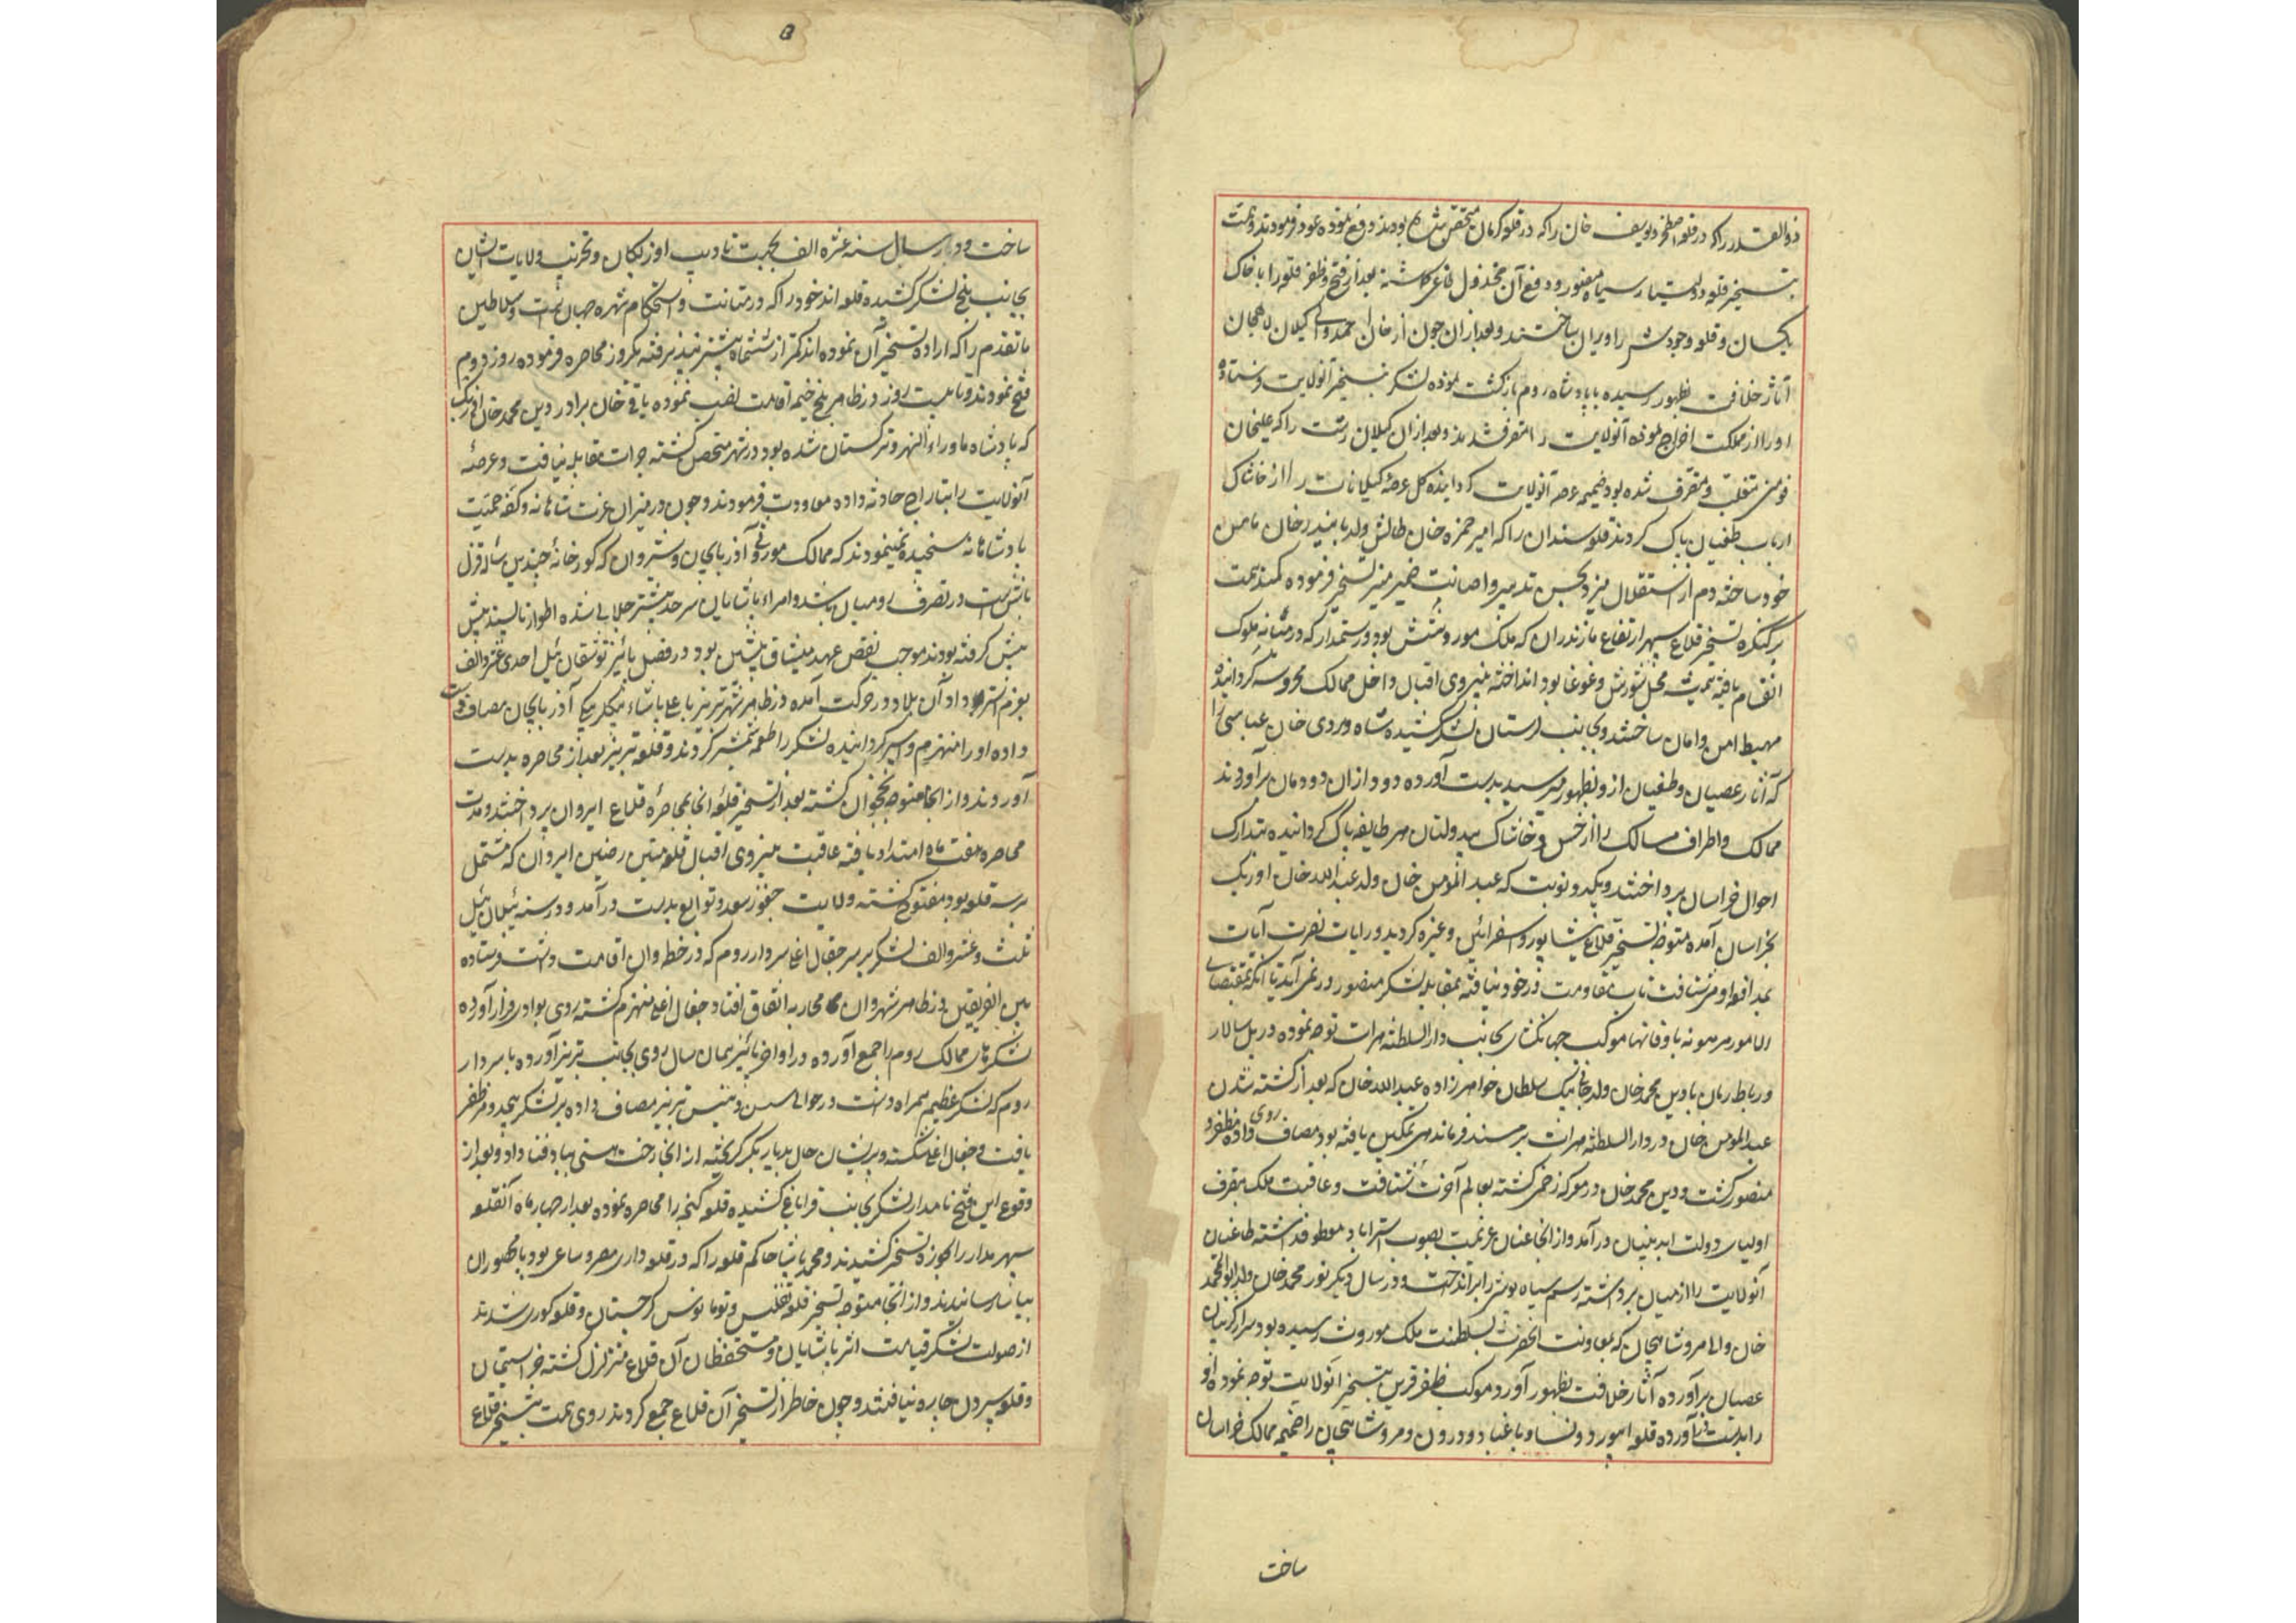 ذوالقدر را که در قلعه اصطخر و یوسف خان را که در قلعه کرمان متحصن شده بودند دفع نموده عود فرمودند و همت
بتسخیر قلعه دولتیار سیاه مقهور و دفع آن مخذول طاغی گماشته بعد از فتح و ظفر قلعه را با خاک
یکسان و قلعه وجودش را ویران ساختند و بعد از آن چون از خان احمد والی گیلان لاهجان
آثار خلافت بظهور رسیده بپادشاه روم بازگشت نموده لشکر بتسخیر آنولایت فرستاده
او را از مملکت اخراج نموده آنولایت را متصرف شدند و بعد از آن گیلان رشت را که علیخان
فومنی متغلب و متصرف شده بود ضمیمه عرصه آنولایت گردانیده کل عرصه گیلانات را از خاشاک
ارباب طغیان پاک کردند قلعه سندان را که امیر حمزه خان طالش ولد بایندر خان مامن
خود ساخته دم از استقلال میزد بحسن تدبیر و اصابت ضمیر منیر تسخیر فرموده کمند همت
برکنگره تسخیر قلاع سپهر ارتفاع مازندران که ملک موروثیش بود و رستمدار که در میانه ملوک
انقسام یافته همیشه محل شورش و غوغا بود انداخته بنیروی اقبال داخل ممالک محروسه گردانیده
مهبط امن و امان ساختند و بجانب لرستان لشکر کشیده شاه وردی خان عباسی را
که آثار عصیان و طغیان از او بظهور میرسید بدست آورده دود از آن دودمان برآوردند
ممالک و اطراف مسالک را از خس و خاشاک بیدولتان هر طایفه پاک گردانیده بتدارک
احوال خراسان پرداختند و یکدو نوبت که عبدالمومن خان ولد عبدالله خان اوزبک
بخراسان آمده متوجه تسخیر قلاع نیشابور و اسفراین و غیره گردید و رایات نصرت آیات
بمدافعه او می شتافت تاب مقاومت در خود نیافته بمقابله لشکر منصور در نمی آمد تا آنکه بمقتضای
الامور مرهونه باوقاتها موکب جهانگشای بجانب دارالسلطنه هرات توجه نموده در پل سالار
و رباط پریان با دین محمد خان ولد جانی بیک سلطان خواهرزاده عبدالله خان که بعد از کشته شدن
عبدالمومن خان در دارالسلطنه هرات بر مسند فرماندهی تمکین یافته بود مصاف روی داده مظفر و
منصور گشت و دین محمد خان در معرکه زخمی گشته بعالم آخرت شتافت و عاقبت ملک بتصرف
اولیای دولت ابد بنیان درآمد و از آنجا عنان عزیمت بصوب استراباد معطوف داشته طاغیان
آنولایت را از میان برداشته رسم سیاه پوشی را برانداخت و در سال دیگر نور محمد خان ولد ابوالمحمد
خان والی مرو شاهیجان که بمعاونت آنحضرت بسلطنت ملک موروث رسیده بود سر از گریبان
عصیان برآورده آثار خلافت بظهور آورد موکب ظفر قرین بتسخیر آنولایت توجه نموده او
را بدست آورده قلعه ابیورد و نسا و باغباد و درون و مرو شاهیجان را ضمیمه ممالک خراسان
ساخت
ساخت و در سال سنه عشره الف بجهت تادیب اوزبکان و تخریب ولایات ایشان
بجانب بلخ لشکر کشیده قلعه اندخود را که در متانت و استحکام شهره جهان است و سلاطین
ماتقدم را که اراده تسخیر آن نموده اند کمتر از ششماه میسر نپذیرفته یکروز محاصره فرموده روز دوم
فتح نمودند و تا بیست روز در ظاهر بلخ خیمه اقامت نصب نموده باقی خان برادر دین محمد خان اوزبک
که پادشاه ماوراءالنهر و ترکستان شده بود در شهر متحصن گشته جرات مقابله نیافت و عرصه
آنولایت را بتاراج حادثه داده معاودت فرمودند و چون در میزان غیرت شاهانه و کفه حمیت
پادشاهانه سنجیده نمینمودند که ممالک موروثی آذربایجان و شیروان که گورخانه چندین ساله قزل
باش است در تصرف رومیان باشد و امراء پاشایان سرحد بیشتر جلالی شده اطوار ناپسند پیش
پیش گرفته بودند موجب نقض عهد و میثاق پیشین بود و در فصل پائیز توشقان ئیل احدی عشر و الف
بعزم استرداد آن بلاد در حرکت آمده در ظاهر شهر تبریز با علی پاشاء بیگلربیگی آذربایجان مصاف
داده او را منهزم و اسیر گردانیده لشکر را طعمه شمشیر کردند و قلعه تبریز بعد از محاصره بدست
آوردند و از آنجا متوجه نخجوان گشته بعد از تسخیر قلعه آنجا بمحاصره قلاع ایروان پرداختند و مدت
محاصره هفت ماه امتداد یافته عاقبت بنیروی اقبال قلعه متین رصین ایروان که مشتمل
بر سه قلعه بود مفتوح گشته ولایت چخور سعد و توابع بدست درآمد و در سنه ئیلان ئیل
ثلث و عشر و الف لشکر بر سر جغال اغلی سردار روم که در خطه وان اقامت داشت فرستاده
بین الفریقین در ظاهر شهر وان محاربه اتفاق افتاد و جغال اغلی منهزم گشته روی بوادی فرار آورده
لشکرهای ممالک روم را جمع آورده در اواخر پائیز همان سال روی بجانب تبریز آورده با سردار
روم که لشکر عظیم همراه داشت در حوالی تبریز مصاف داده بر لشکر بیحد و مر ظفر
یافت و جغال اغلی شکسته و پریشان حال بدیار بکر گریخته از آنجا رخت هستی بباد فنا داد و بعد از
وقوع این فتح نامدار لشکر بجانب قراباغ کشیده قلعه گنجه را محاصره نموده بعد از چهار ماه آنقلعه
سپهر مدار را بحوزه تسخیر کشیدند و محمد پاشا حاکم قلعه را که در قلعه داری مصر و ساعی بود با محصوران
بیاسا رسانیدند و از آنجا متوجه تسخیر قلعه تفلیس و تومانوس گرجستان و قلعه لوری شدند
از صولت لشکر قیامت اثر پاشایان و مستحفظان آن قلاع متزلزل گشته جز استیمان
و قلعه سپردن چاره نیافتند و چون خاطر از تسخیر آن قلاع جمع کردند روی همت بتسخیر قلاع